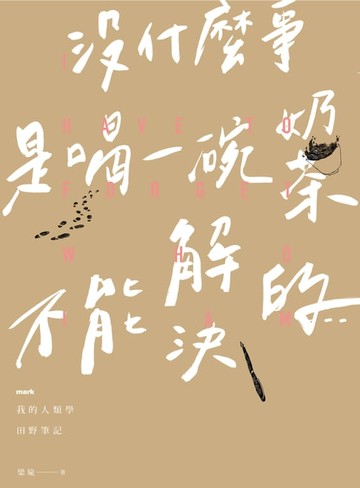 沒什麼事
I HAVE TO
是喝一碗奶茶
FORGET
WHO
不能解決的…
I AM
mark
我的人類學
田野筆記
梁瑜——著